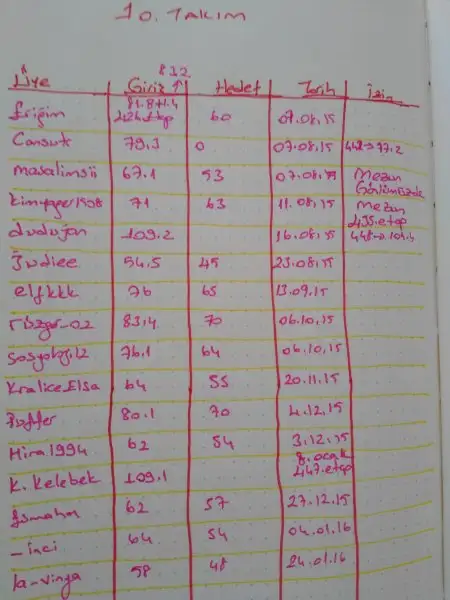 10. TAKIM
832
Üye Giriş ↑ Hedef Tarih İzin
81.8+1.4
Erişim 424.etap 60 07.08.15
Cansuk 79.3 0 07.08.15 442->77.2
masalimsii 67.1 53 07.08.15 Mezun
Gönlümüzde
kimyager1508 71 63 11.08.15 Mezun
435.etap
dudujan 109.2 16.08.15
Judiee 54.5 45 23.08.15
elfkkk 76 65 13.09.15
rüzgar_02 83,4 70 06.10.15
sosyolog12 76.1 64 06.10.15
Kralice_Elsa 64 55 20.11.15
Puffer 80.1 70 4.12.15
Hira1994 62 54 3.12.15
8.ocak
K. Kelebek 109.1 447.etap
Esmahan 62 57 27.12.15
_inci 64 54 04.01.16
la-vinya 58 48 24.01.16